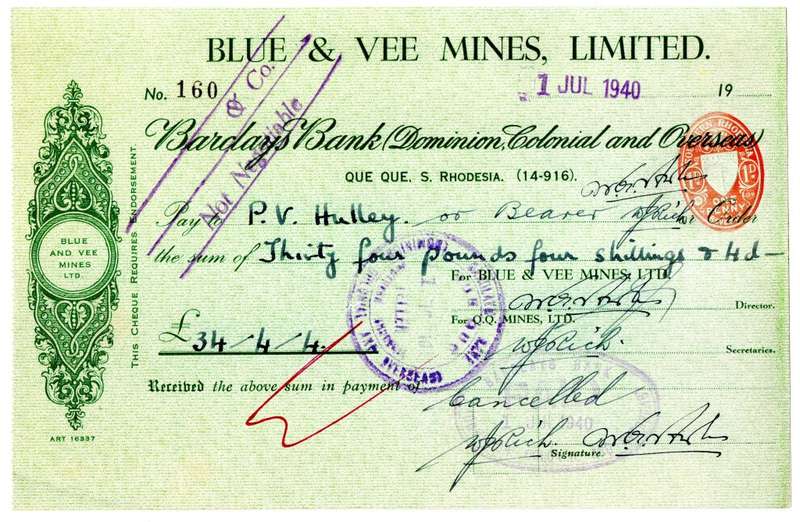 BLUE & VEE MINES, LIMITED.
& Co.
Not Negotiable
No. 160
1 JUL 1940 19
Barclays Bank (Dominion, Colonial and Overseas)
QUE QUE, S. RHODESIA. (14-916).
Pay to P. V. Hulley. or Bearer or Order
the sum of Thirty four pounds four shillings & 4d
For BLUE & VEE MINES, LTD.
Director.
£34/4/4.
For Q.Q. MINES, LTD.
Secretaries.
Received the above sum in payment of
Cancelled
Signature.
BLUE
AND VEE
MINES
LTD.
ART 16337
THIS CHEQUE REQUIRES ENDORSEMENT
1 JUL 1940